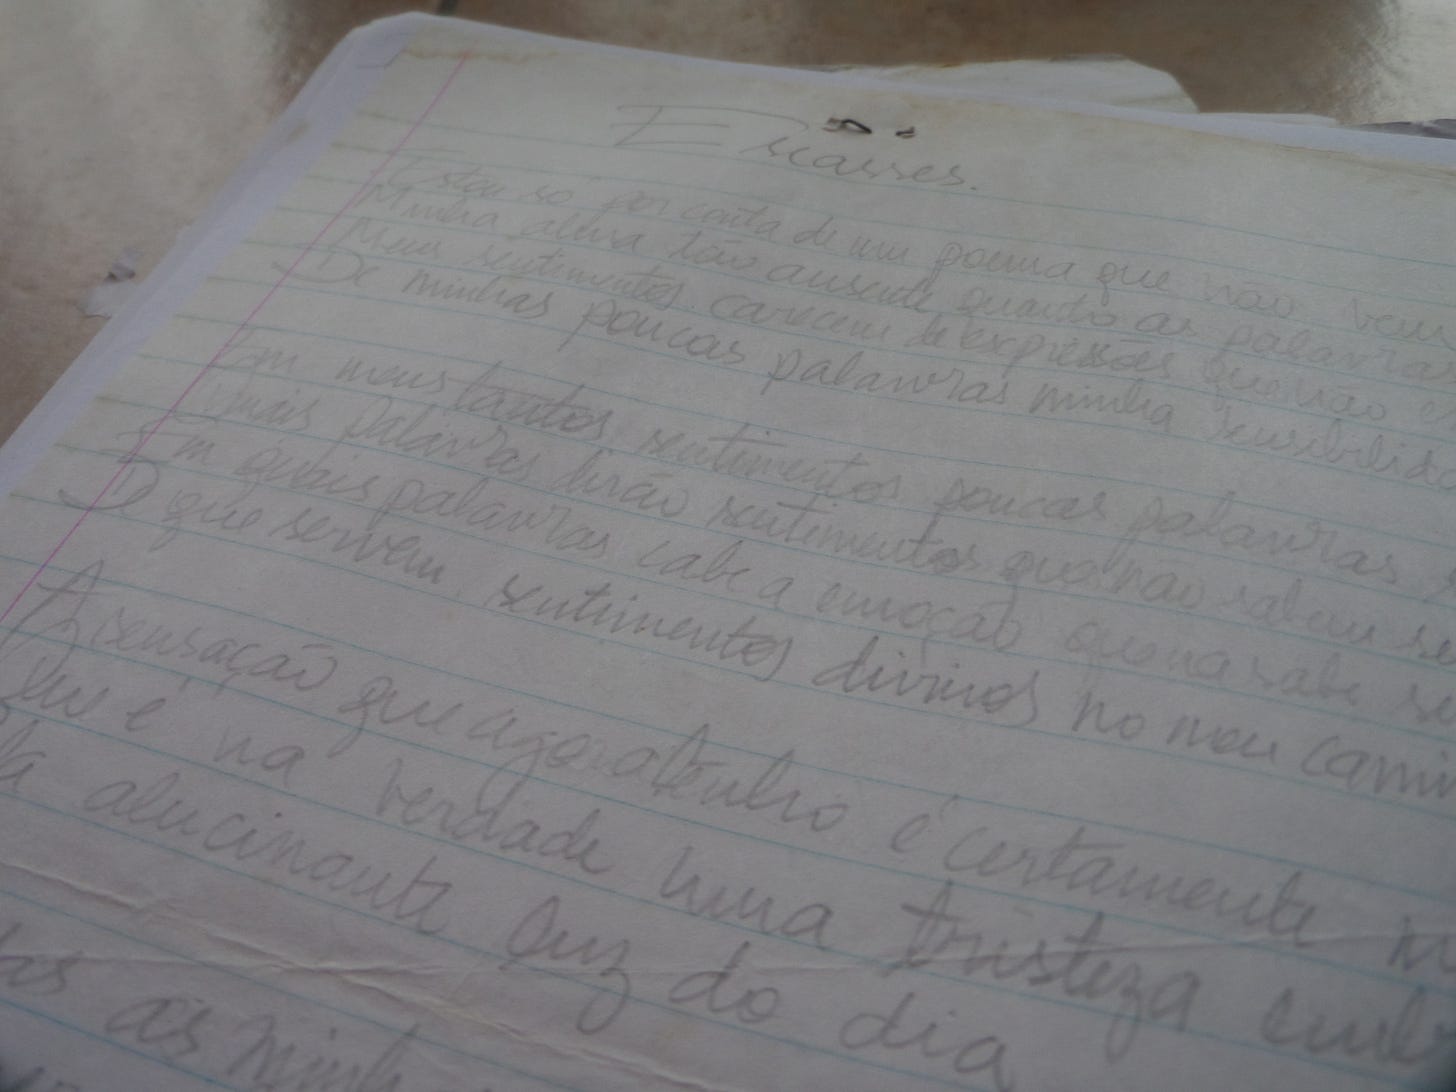 Escasses.
Estou só por conta de um poema que não vem
Minha alma tão ausente quanto as palavras
Meus sentimentos carecem de expressões que não
De minhas poucas palavras minha sensibilida
Em meus tantos sentimentos poucas palavras
Quais palavras dirão sentimentos que não sabem se
Em quais palavras cabe a emoção que na sabe se
D que servem sentimentos divinos no meu cami
A sensação que agora tenho é certamente
que é na verdade uma tristeza
la alucinante luz do dia
as minh